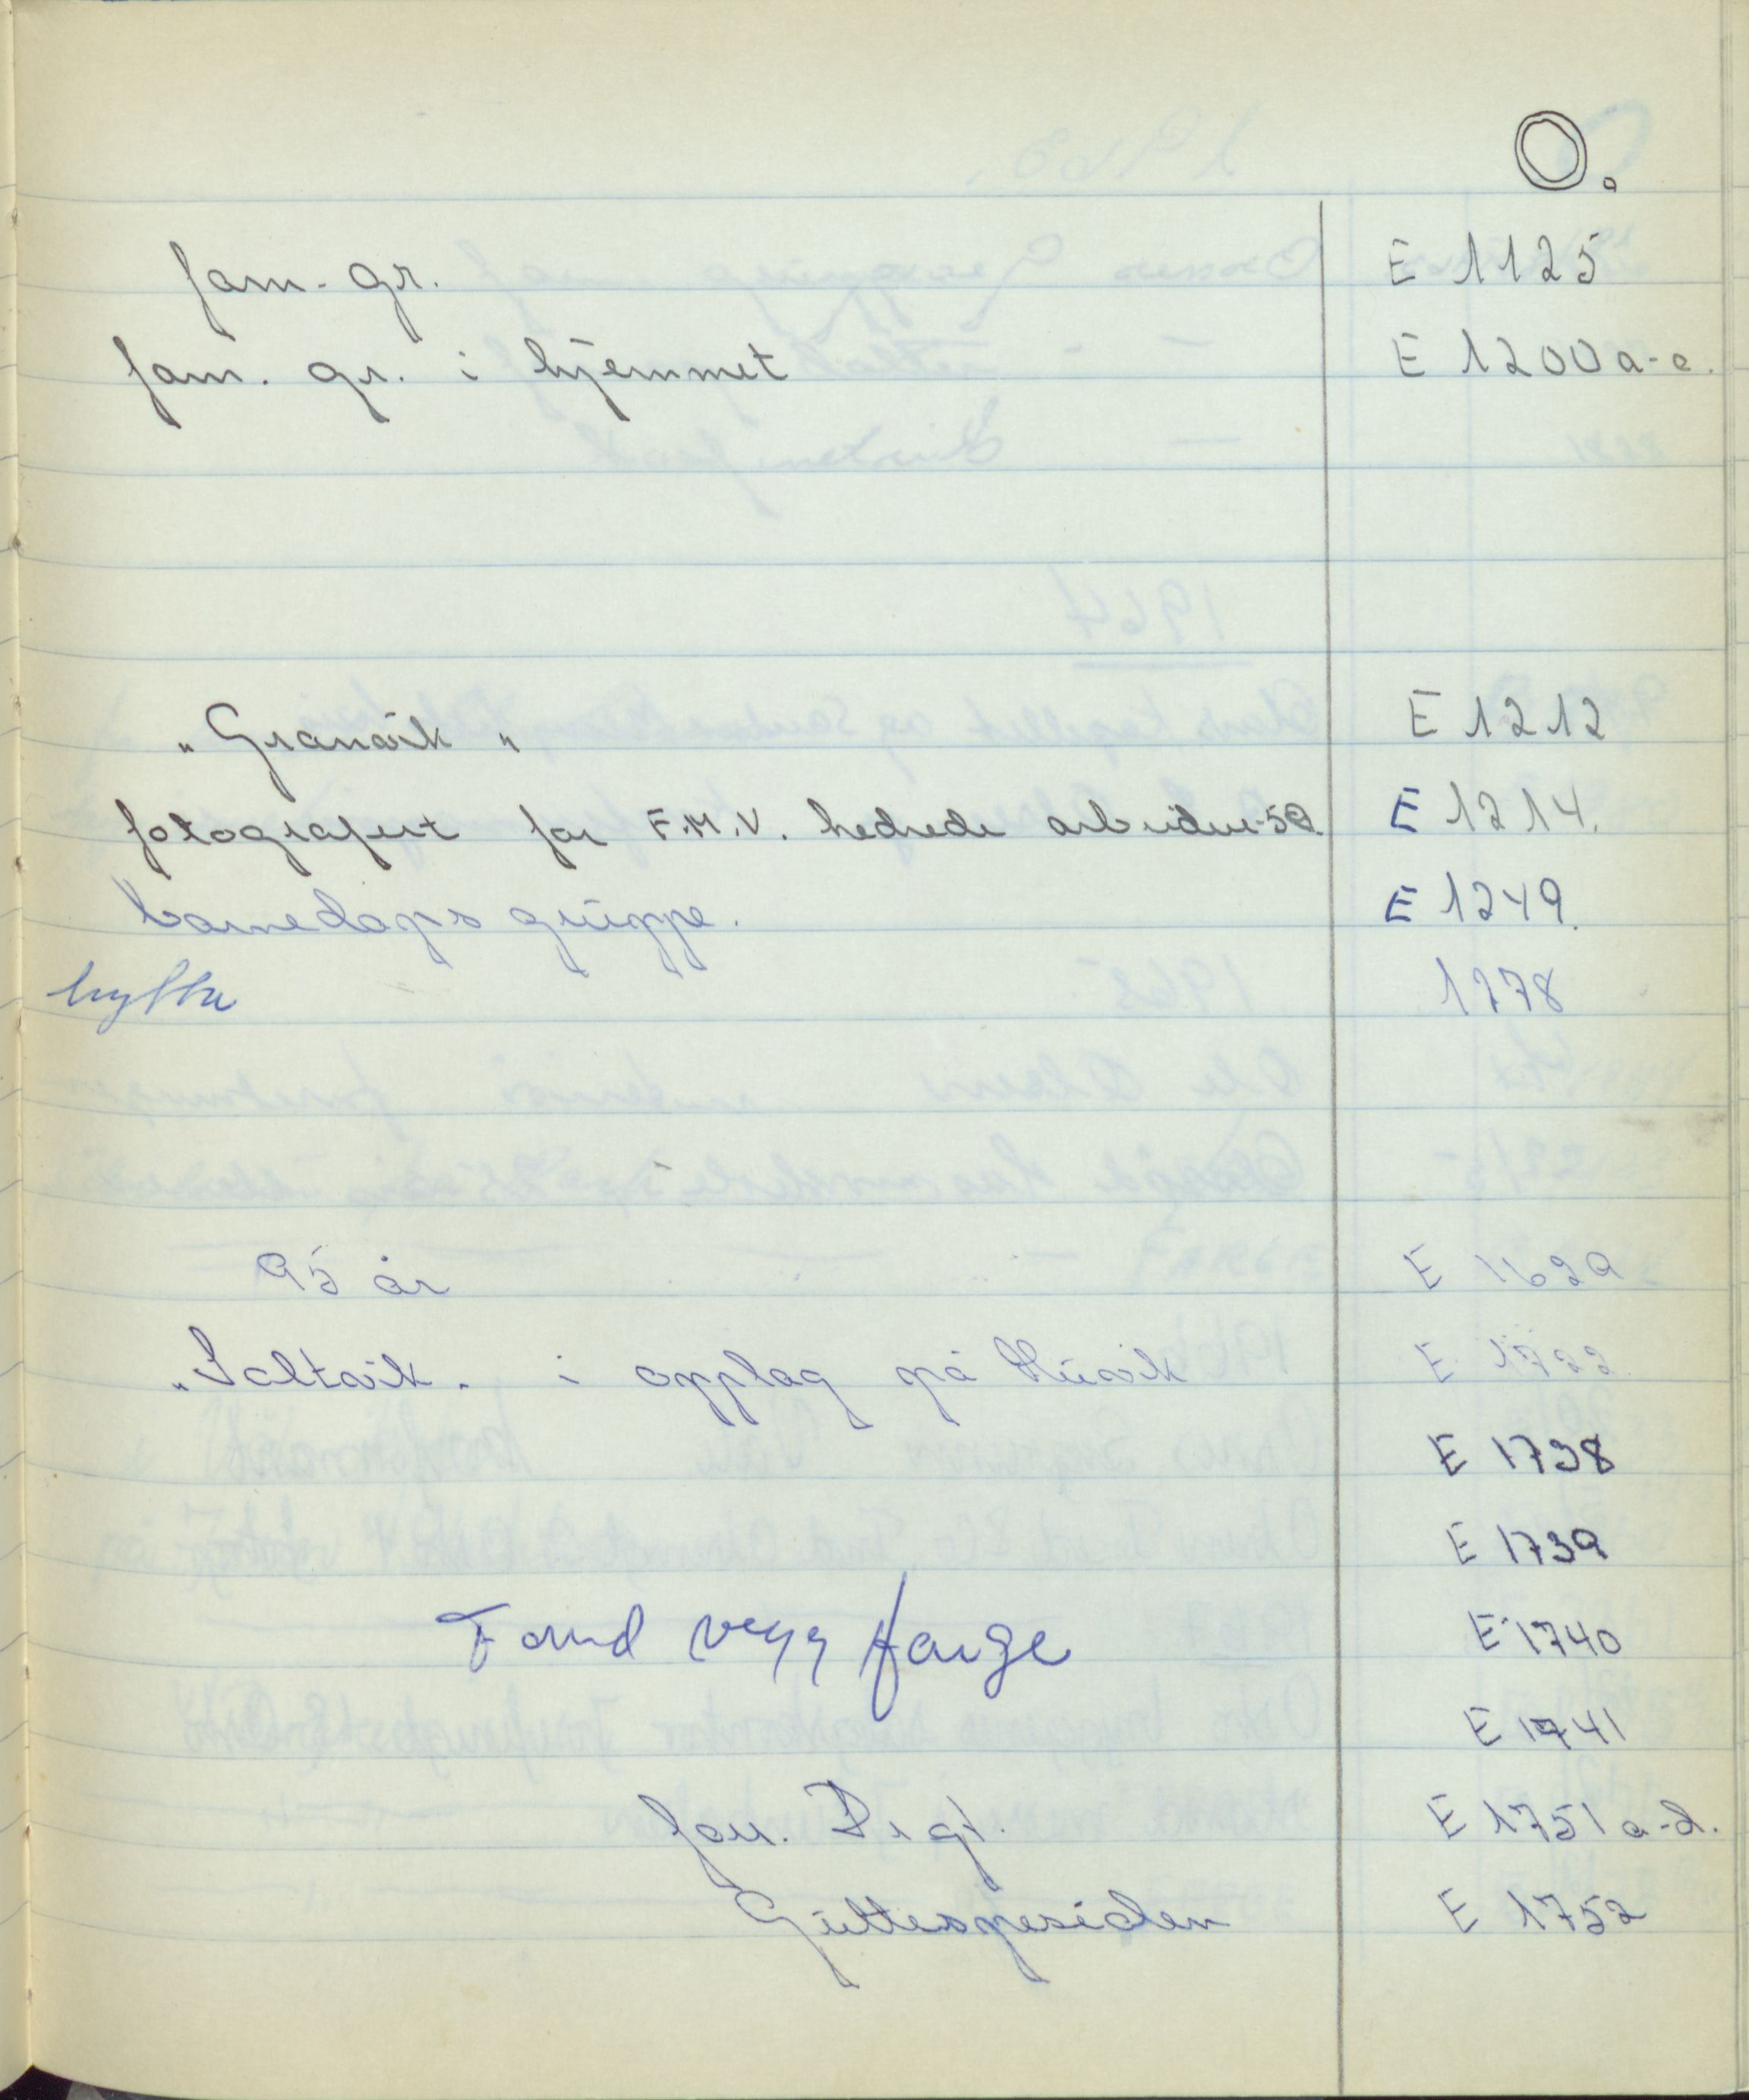 O.
fam. gr. E 1125
fam. gr. i hjemmet E 1200 a-e.
"Granvik" E 1212
fotografert for F.M.V. hedrede arbeidere 59. E 1214.
barnedags gruppe. E 1249.
hytta 1278
95 år E 1629
"Saltvik" i opplag på Húsvik E 1722.
E 1738
E 1739
Tomd vegg farge E 1740
E 1741
fam. E 1751 a-d.
E 1752